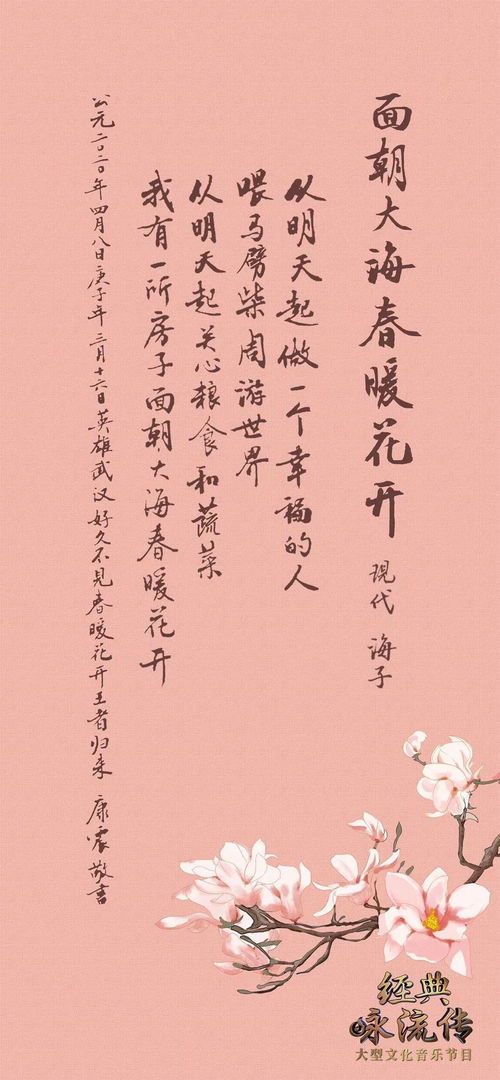 面朝大海春暖花开 现代 海子
从明天起做一个幸福的人
喂马劈柴周游世界
从明天起关心粮食和蔬菜
我有一所房子面朝大海春暖花开
公元二〇二〇年四月八日庚子年三月十六日英雄武汉好久不见春暖花开王者归来 康震敬书
经典
咏流传
大型文化音乐节目